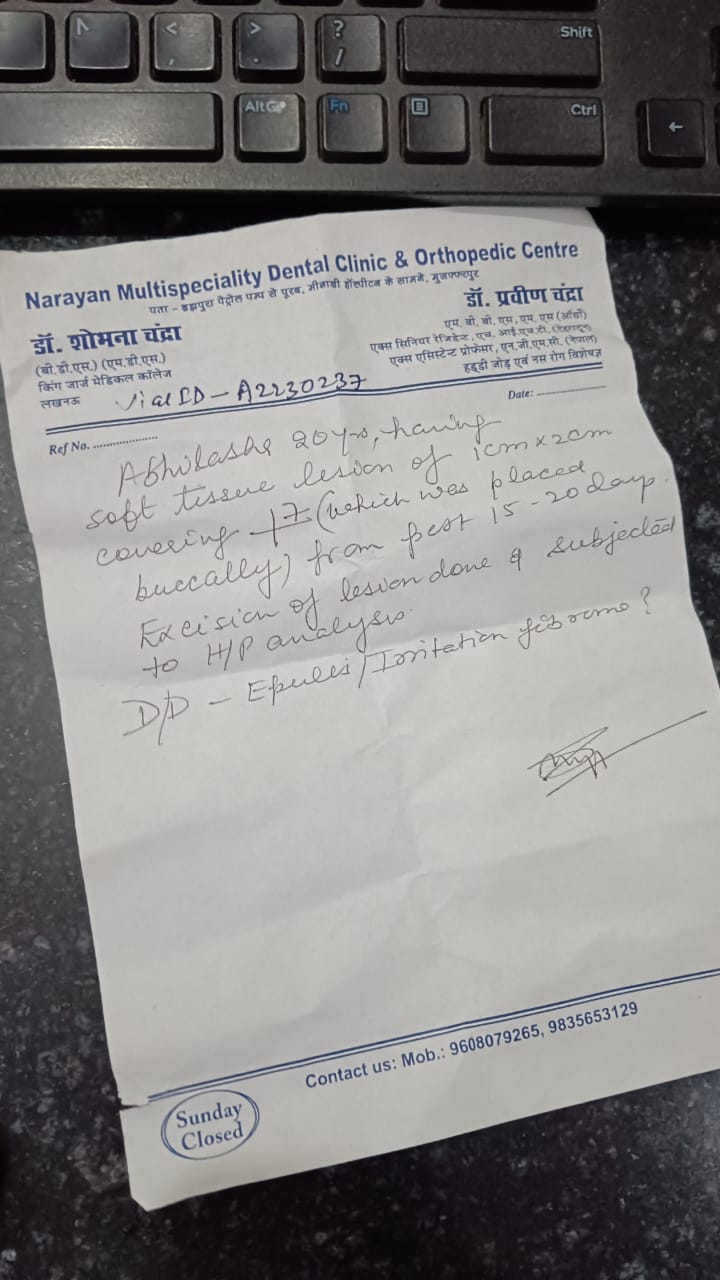 ^
<
,
>
.
?
/
Shift
Alt Gr
Fn
Ctrl
←
Narayan Multispeciality Dental Clinic & Orthopedic Centre
पता – ब्रह्मपुरा पेट्रोल पम्प से पूरब, मीनाक्षी हॉस्पीटल के सामने, मुजफ्फरपुर
डॉ. शोभना चंद्रा
(बी.डी.एस.) (एम.डी.एस.)
किंग जार्ज मेडिकल कॉलेज
लखनऊ
डॉ. प्रवीण चंद्रा
एम. बी. बी. एस, एम. एस (ऑर्थो)
एक्स सिनियर रेजिडेन्ट, एच. आई.एच.टी. (देहरादून)
एक्स एसिस्टेन्ट प्रोफेसर, एन.जी.एम.सी. (नेपाल)
हड्डी जोड़ एवं नस रोग विशेषज्ञ
Vial ID - A2230237
Ref No. ....................
Date: ....................
Abhilasha 20 yrs, having
soft tissue lesion of 1cm x 2cm
covering 7 (which was placed
buccally) from past 15-20 days.
Excision of lesion done & subjected
to H/P analysis.
D/D - Epulis/Irritation fibroma?
Contact us: Mob.: 9608079265, 9835653129
Sunday
Closed